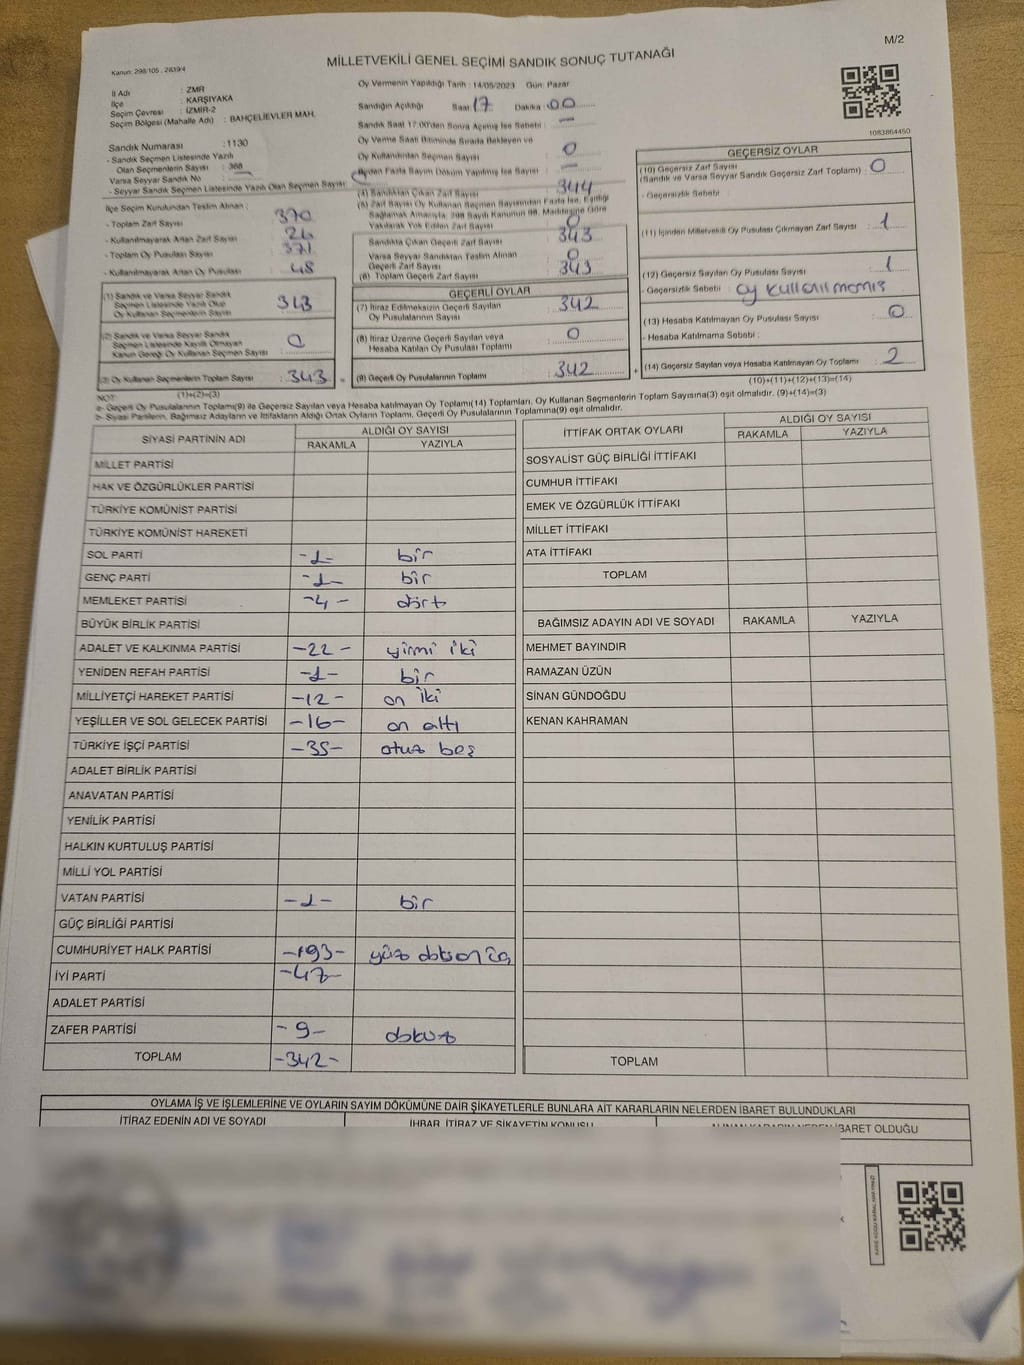 M/2
MİLLETVEKİLİ GENEL SEÇİMİ SANDIK SONUÇ TUTANAĞI
Kanun: 298/105 , 2839/4
İl Adı : ZMR
İlçe : KARŞIYAKA
Seçim Çevresi : İZMİR-2
Seçim Bölgesi (Mahalle Adı) : BAHÇELİEVLER MAH.
Sandık Numarası : 1130
- Sandık Seçmen Listesinde Yazılı
Olan Seçmenlerin Sayısı : 368
Varsa Seyyar Sandık No :
- Seyyar Sandık Seçmen Listesinde Yazılı Olan Seçmen Sayısı :
İlçe Seçim Kurulundan Teslim Alınan :
- Toplam Zarf Sayısı 370
- Kullanılmayarak Artan Zarf Sayısı 26
- Toplam Oy Pusulası Sayısı 371
- Kullanılmayarak Artan Oy Pusulası 48
(1) Sandık ve Varsa Seyyar Sandık
Seçmen Listesinde Yazılı Olup
Oy Kullanan Seçmenlerin Sayısı : 343
(2) Sandık ve Varsa Seyyar Sandık
Seçmen Listesinde Kayıtlı Olmayan
Kanun Gereği Oy Kullanan Seçmen Sayısı : 0
(3) Oy Kullanan Seçmenlerin Toplam Sayısı : 343
(1)+(2)=(3)
Oy Vermenin Yapıldığı Tarih : 14/05/2023 Gün: Pazar
Sandığın Açıldığı Saat 17 Dakika : 00
Sandık Saat 17:00'den Sonra Açılmış İse Sebebi : —
Oy Verme Saati Bitiminde Sırada Bekleyen ve
Oy Kullandırılan Seçmen Sayısı : 0
Birden Fazla Sayım Döküm Yapılmış İse Sayısı : —
(4) Sandıktan Çıkan Zarf Sayısı : 344
(5) Zarf Sayısı Oy Kullanan Seçmen Sayısından Fazla İse, Eşitliği
Sağlamak Amacıyla, 298 Sayılı Kanunun 98. Maddesine Göre
Yakılarak Yok Edilen Zarf Sayısı : 0
Sandıkta Çıkan Geçerli Zarf Sayısı : 343
Varsa Seyyar Sandıktan Teslim Alınan
Geçerli Zarf Sayısı : 0
(6) Toplam Geçerli Zarf Sayısı : 343
GEÇERLİ OYLAR
(7) İtiraz Edilmeksizin Geçerli Sayılan
Oy Pusulalarının Sayısı : 342
(8) İtiraz Üzerine Geçerli Sayılan veya
Hesaba Katılan Oy Pusulası Toplamı : 0
(9) Geçerli Oy Pusulalarının Toplamı : 342
1083864450
GEÇERSİZ OYLAR
(10) Geçersiz Zarf Sayısı
(Sandık ve Varsa Seyyar Sandık Geçersiz Zarf Toplamı) : 0
- Geçersizlik Sebebi :
(11) İçinden Milletvekili Oy Pusulası Çıkmayan Zarf Sayısı : 1
(12) Geçersiz Sayılan Oy Pusulası Sayısı : 1
- Geçersizlik Sebebi : oy kullanılmamış
(13) Hesaba Katılmayan Oy Pusulası Sayısı : 0
- Hesaba Katılmama Sebebi :
(14) Geçersiz Sayılan veya Hesaba Katılmayan Oy Toplamı : 2
(10)+(11)+(12)+(13)=(14)
NOT:
a- Geçerli Oy Pusulalarının Toplamı(9) ile Geçersiz Sayılan veya Hesaba katılmayan Oy Toplamı(14) Toplamları, Oy Kullanan Seçmenlerin Toplam Sayısına(3) eşit olmalıdır. (9)+(14)=(3)
b- Siyasi Partilerin, Bağımsız Adayların ve İttifakların Aldığı Ortak Oyların Toplamı, Geçerli Oy Pusulalarının Toplamına(9) eşit olmalıdır.
SİYASİ PARTİNİN ADI ALDIĞI OY SAYISI
RAKAMLA YAZIYLA
MİLLET PARTİSİ
HAK VE ÖZGÜRLÜKLER PARTİSİ
TÜRKİYE KOMÜNİST PARTİSİ
TÜRKİYE KOMÜNİST HAREKETİ
SOL PARTİ -1- bir
GENÇ PARTİ -1- bir
MEMLEKET PARTİSİ -4- dört
BÜYÜK BİRLİK PARTİSİ
ADALET VE KALKINMA PARTİSİ -22- yirmi iki
YENİDEN REFAH PARTİSİ -1- bir
MİLLİYETÇİ HAREKET PARTİSİ -12- on iki
YEŞİLLER VE SOL GELECEK PARTİSİ -16- on altı
TÜRKİYE İŞÇİ PARTİSİ -35- otuz beş
ADALET BİRLİK PARTİSİ
ANAVATAN PARTİSİ
YENİLİK PARTİSİ
HALKIN KURTULUŞ PARTİSİ
MİLLİ YOL PARTİSİ
VATAN PARTİSİ -1- bir
GÜÇ BİRLİĞİ PARTİSİ
CUMHURİYET HALK PARTİSİ -193- yüz doksan üç
İYİ PARTİ -47-
ADALET PARTİSİ
ZAFER PARTİSİ -9- dokuz
TOPLAM -342-
İTTİFAK ORTAK OYLARI ALDIĞI OY SAYISI
RAKAMLA YAZIYLA
SOSYALİST GÜÇ BİRLİĞİ İTTİFAKI
CUMHUR İTTİFAKI
EMEK VE ÖZGÜRLÜK İTTİFAKI
MİLLET İTTİFAKI
ATA İTTİFAKI
TOPLAM
BAĞIMSIZ ADAYIN ADI VE SOYADI RAKAMLA YAZIYLA
MEHMET BAYINDIR
RAMAZAN ÜZÜN
SİNAN GÜNDOĞDU
KENAN KAHRAMAN
TOPLAM
OYLAMA İŞ VE İŞLEMLERİNE VE OYLARIN SAYIM DÖKÜMÜNE DAİR ŞİKAYETLERLE BUNLARA AİT KARARLARIN NELERDEN İBARET BULUNDUKLARI
İTİRAZ EDENİN ADI VE SOYADI İHBAR, İTİRAZ VE ŞİKAYETİN KONUSU ALINAN KARARIN NEDEN İBARET OLDUĞU